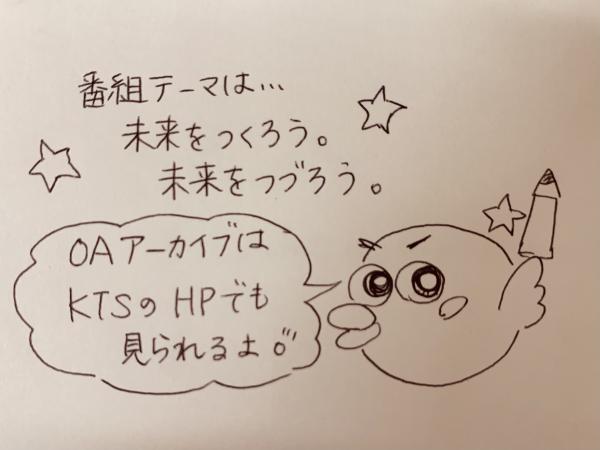 番組テーマは…
未来をつくろう。
未来をつづろう。
OAアーカイブは
KTSのHPでも
見られるよ。